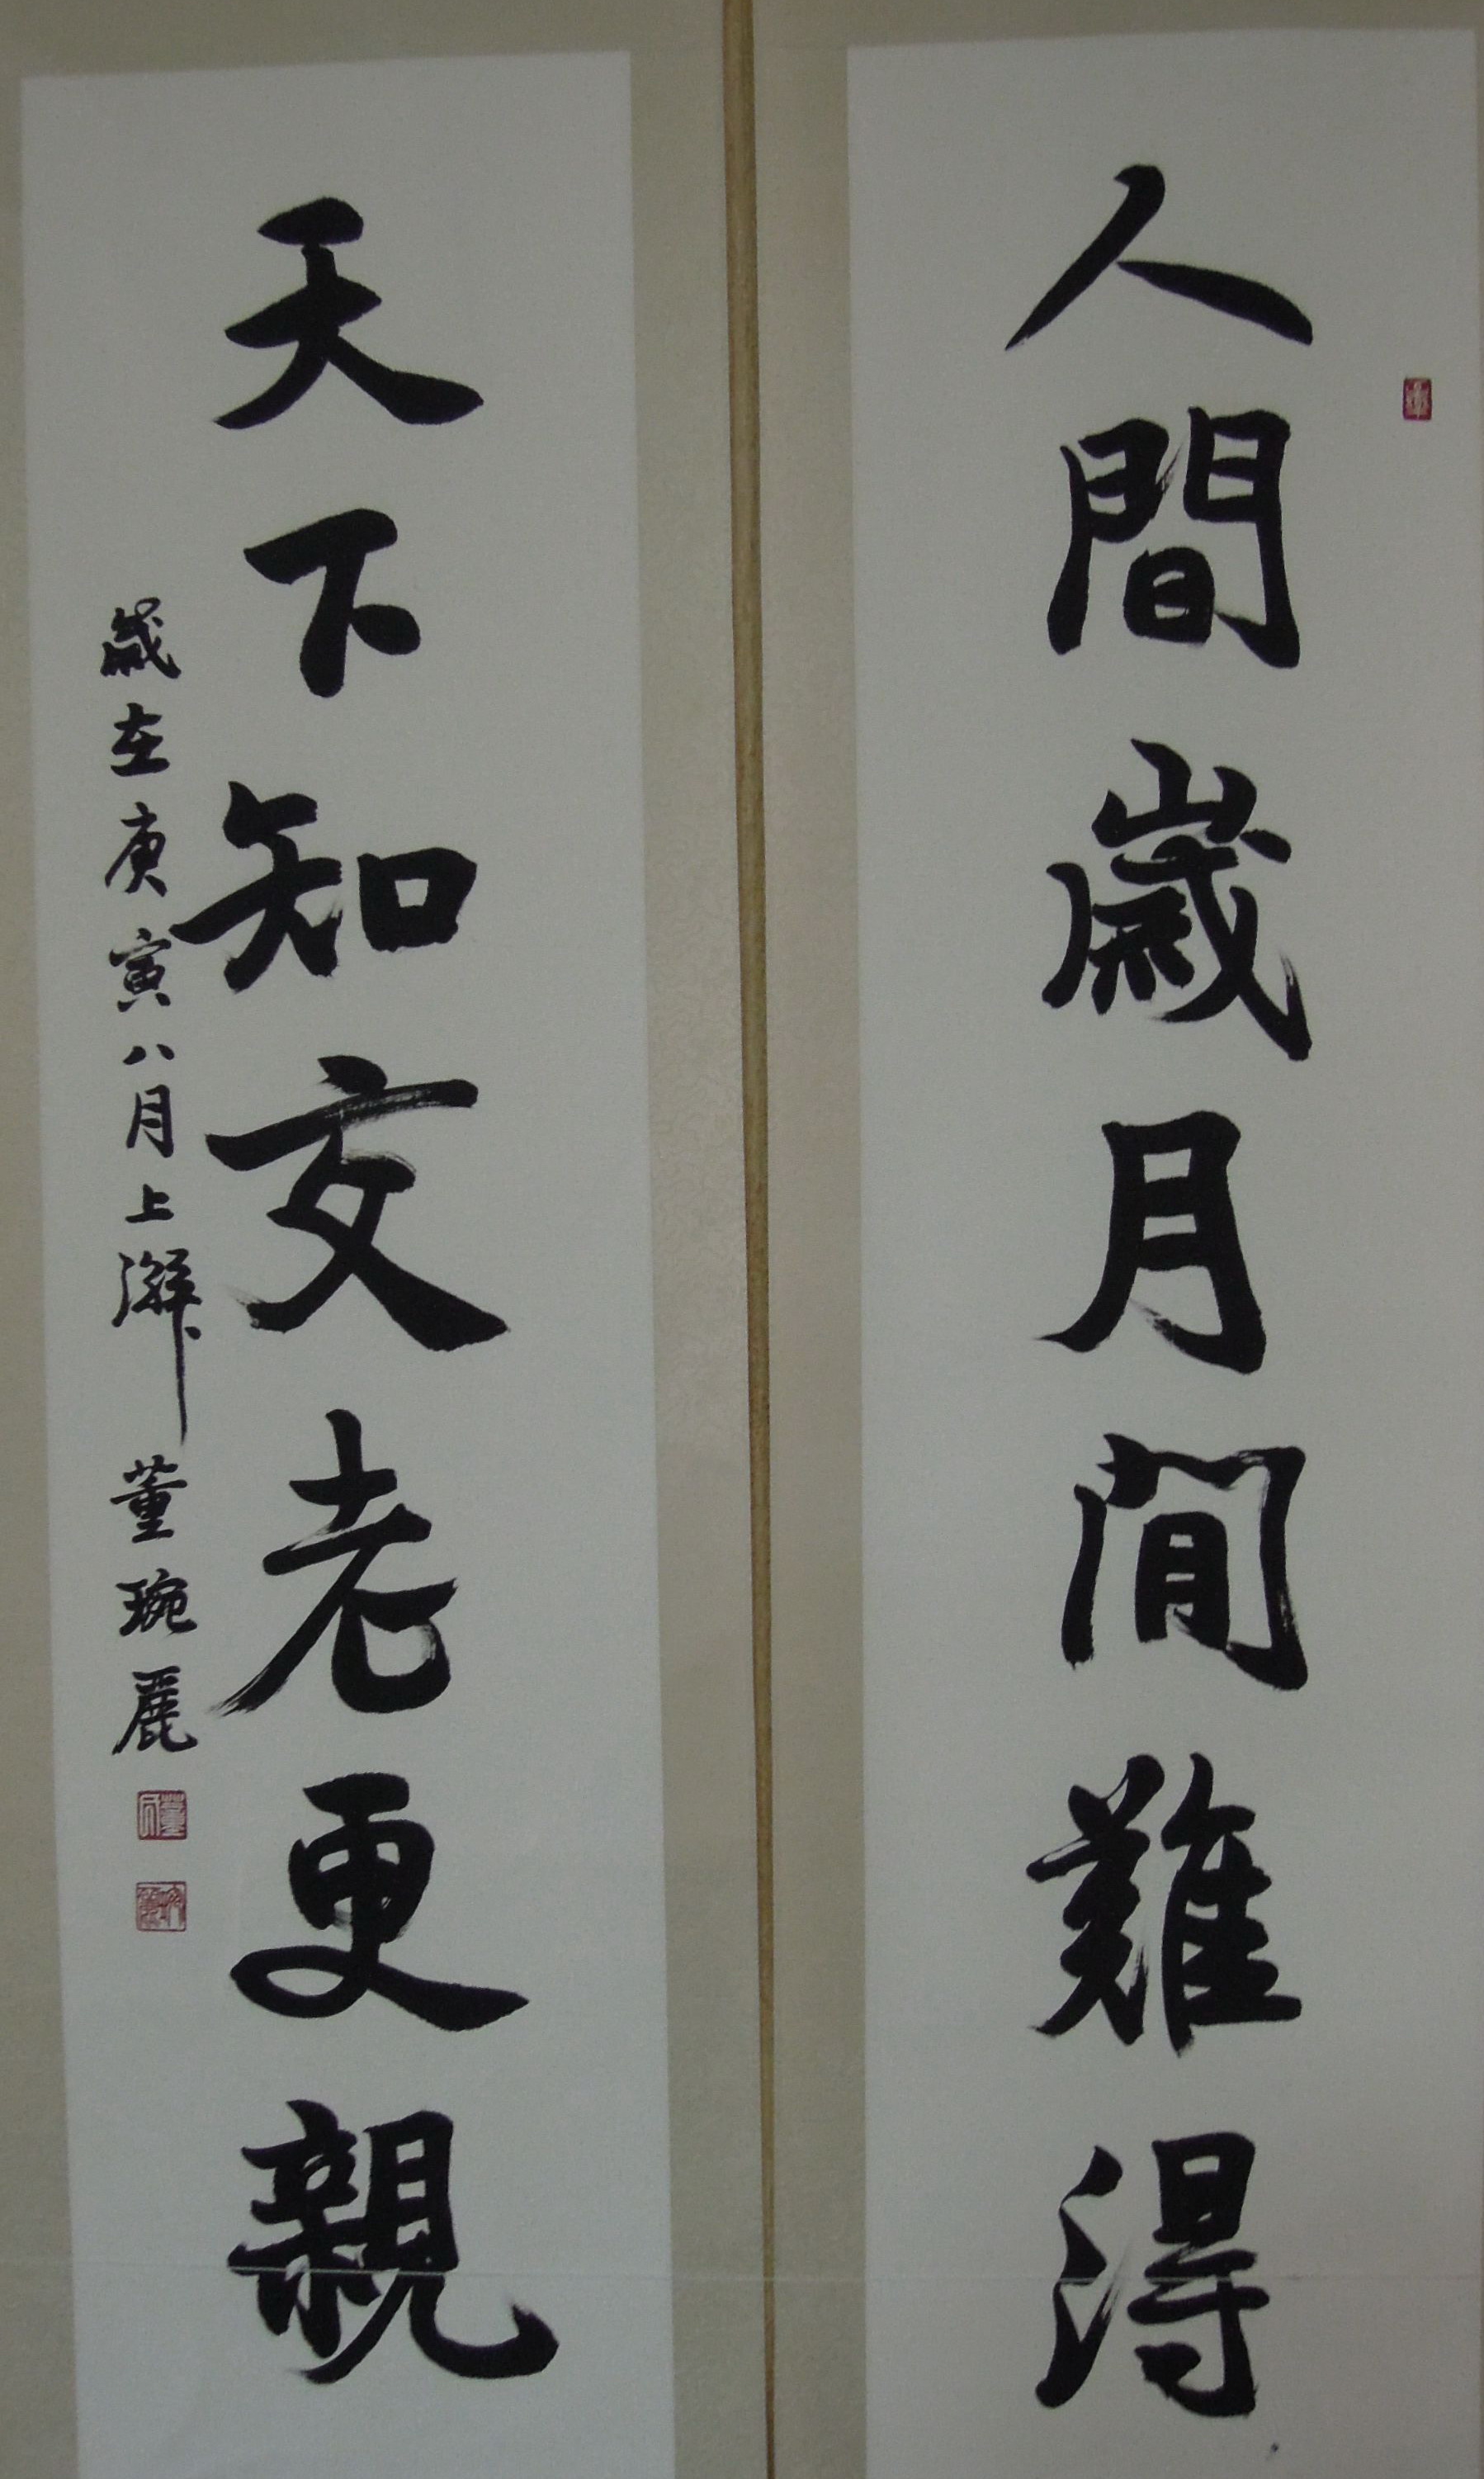 人間歲月閒難得
天下知交老更親
歲在庚寅八月上澣 董琬麗